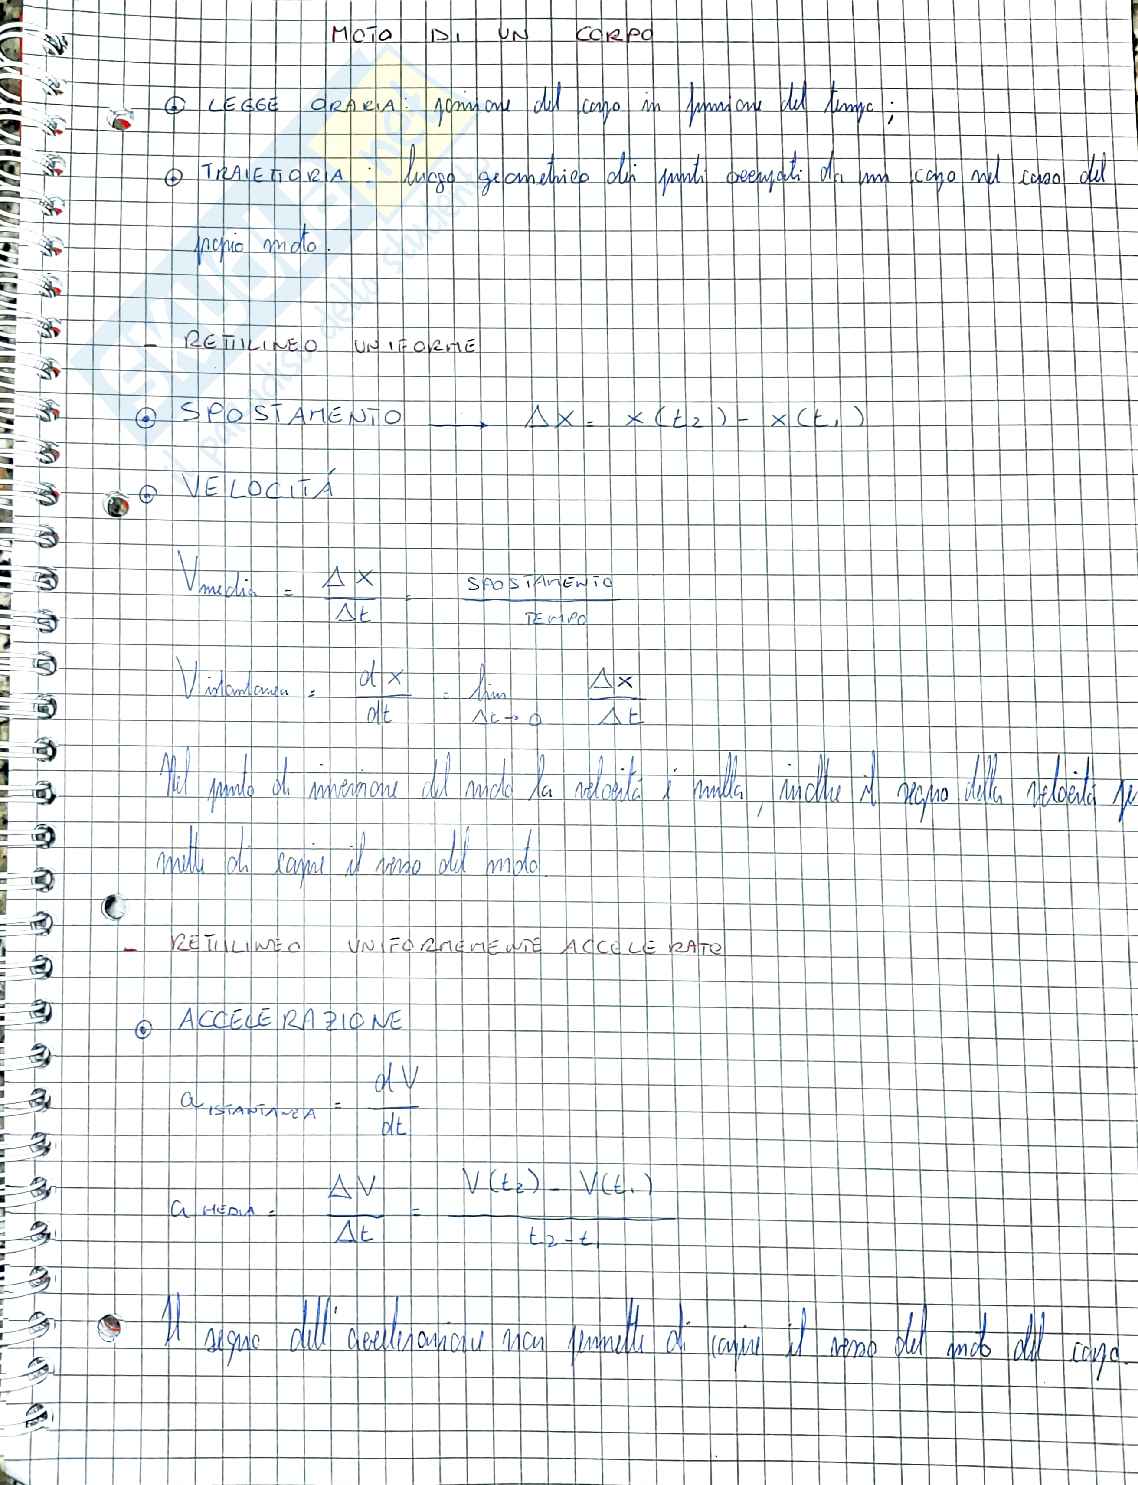 MOTO DI UN CORPO
LEGGE ORARIA: posizione del corpo in funzione del tempo;
TRAIETTORIA: luogo geometrico dei punti occupati da un corpo nel corso del
proprio moto.
- RETTILINEO UNIFORME
SPOSTAMENTO → Δx = x(t2) - x(t1)
VELOCITÁ
Vmedia = Δx/Δt = SPOSTAMENTO/TEMPO
Vistantanea = dx/dt = lim Δt→0 Δx/Δt
Nel punto di inversione del moto la velocità è nulla, inoltre il segno della velocità per
mette di capire il verso del moto.
- RETTILINEO UNIFORMEMENTE ACCELERATO
ACCELERAZIONE
a ISTANTANEA = dV/dt
a MEDIA = ΔV/Δt = V(t2) - V(t1)/t2-t1
Il segno dell'accelerazione non permette di capire il verso del moto del corpo.
SKUOLA.net
il paradiso dello studente